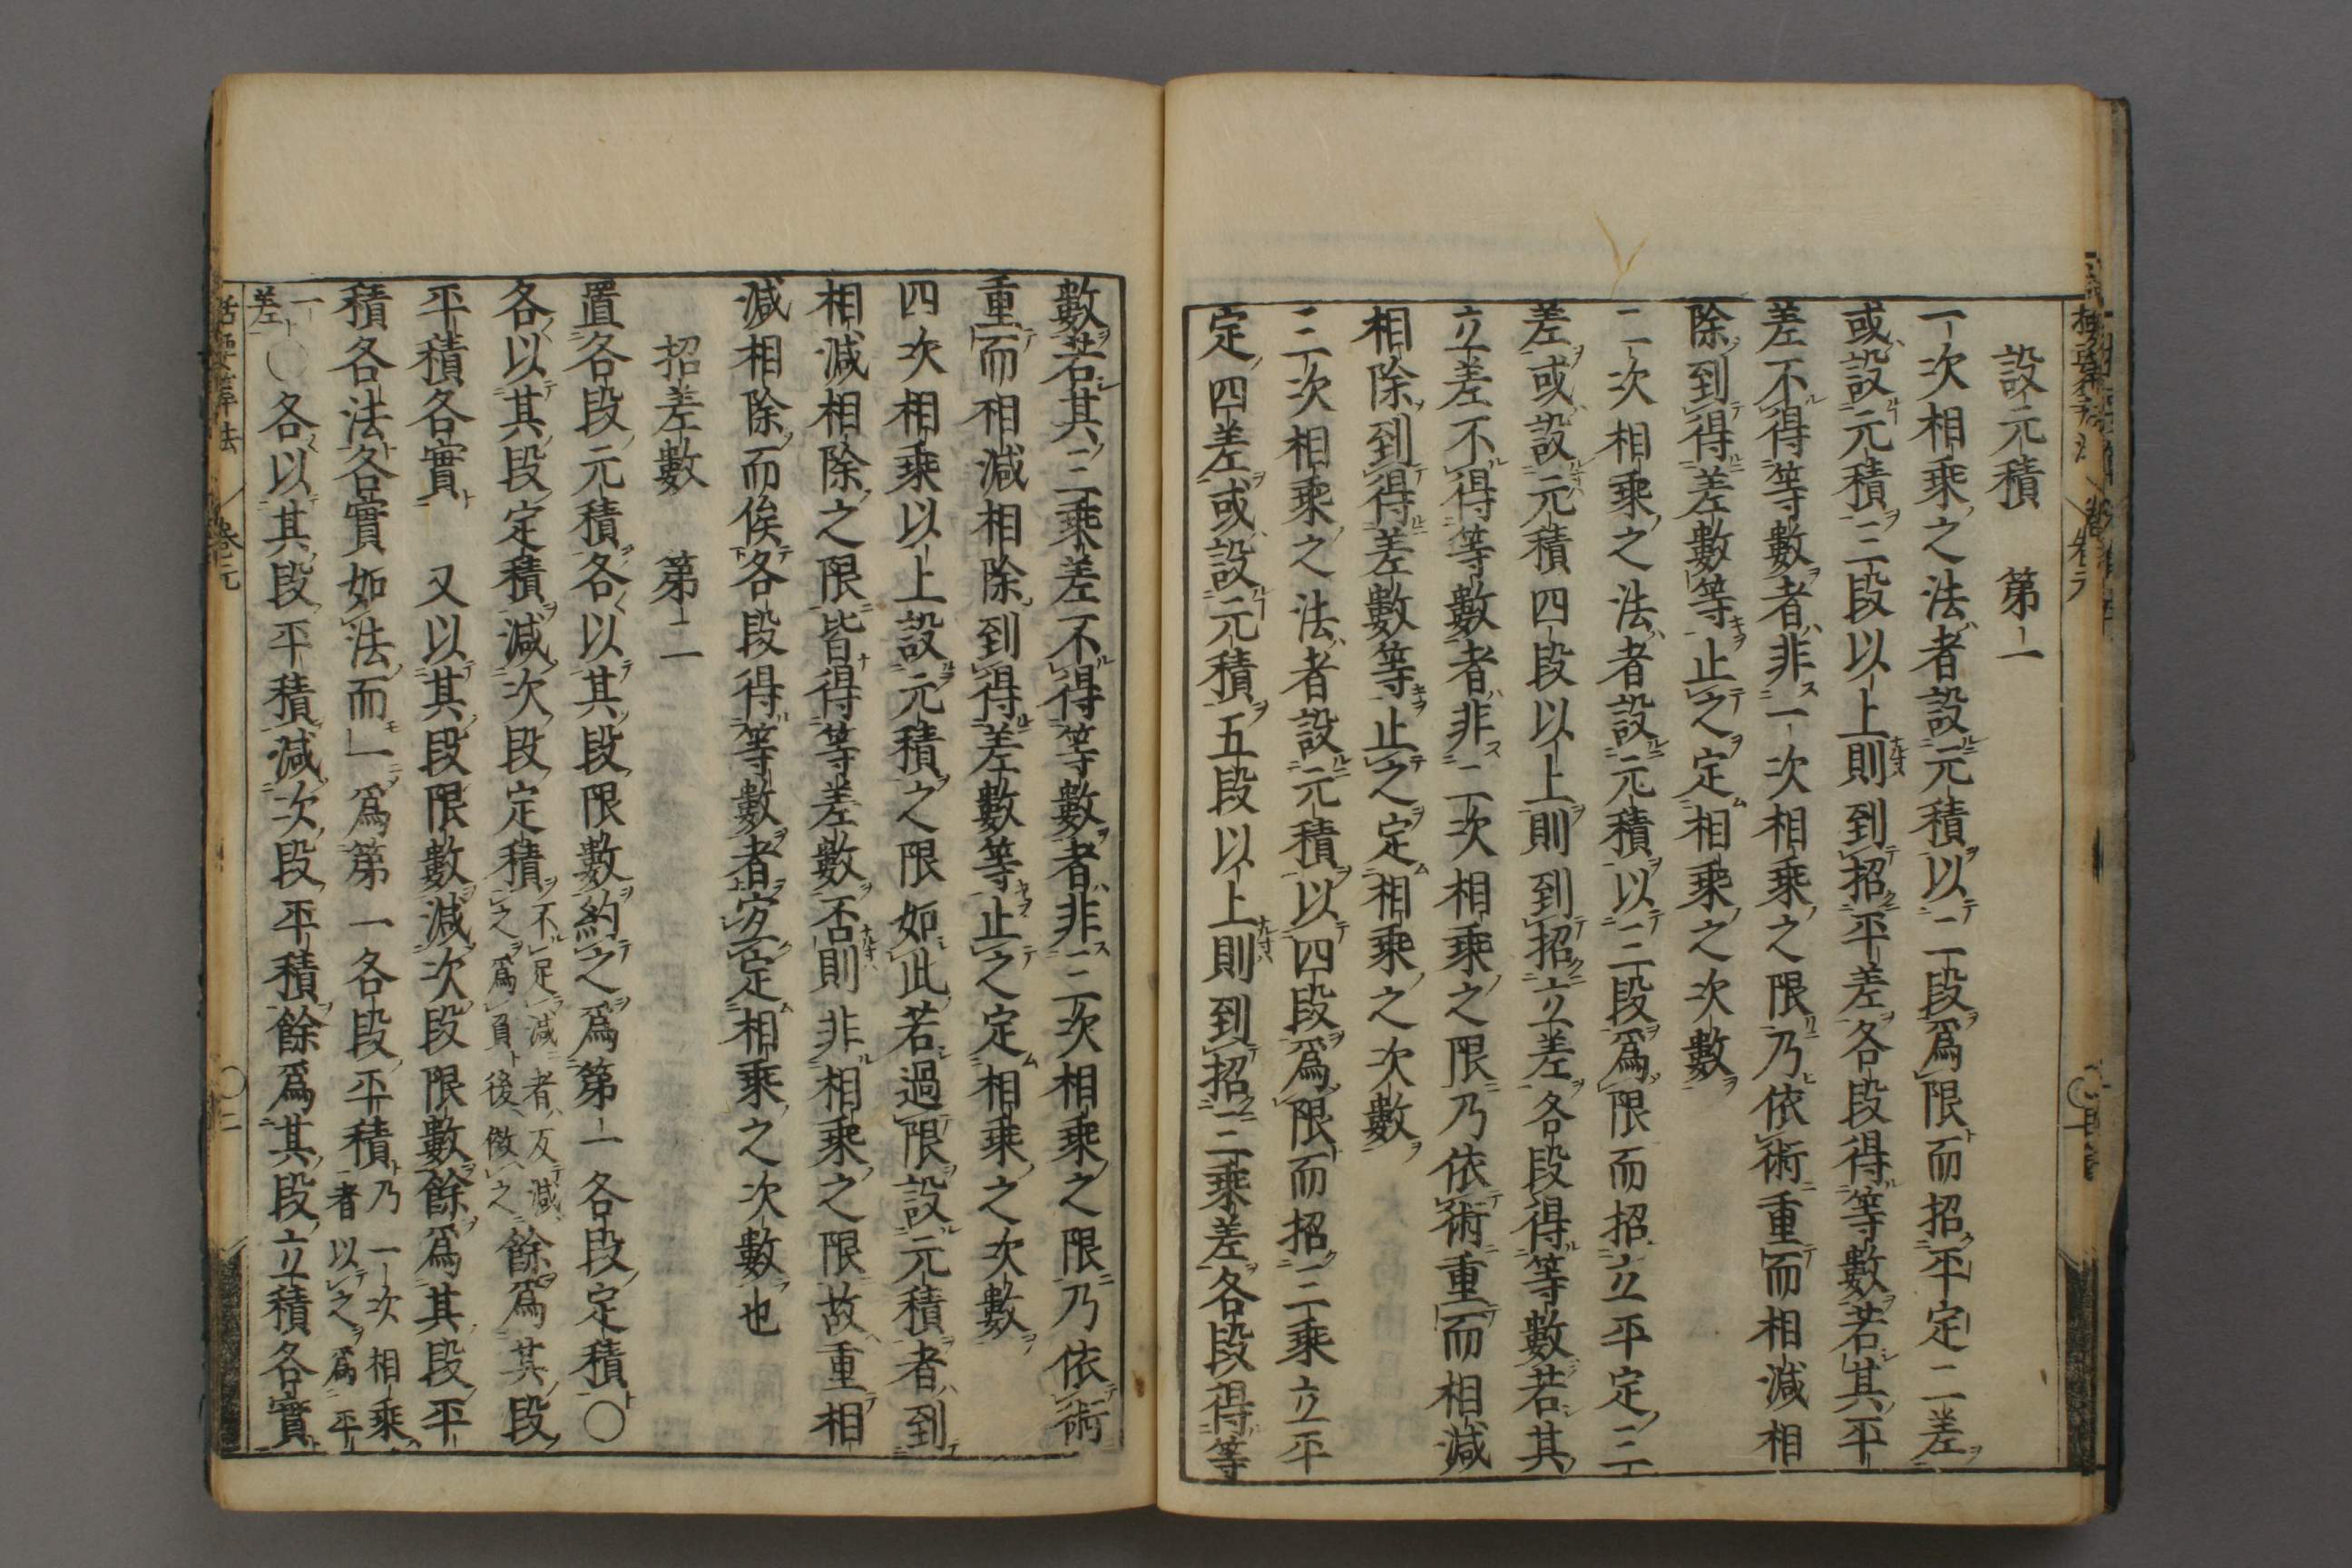 設元積　第一
一次相乘之法者設元積以二段爲限而招平定二差
或設元積三段以上則到招平差各段得等數若其平
差不得等數者非一次相乘之限乃依術重而相減相
除到得差數等止之定相乘之次數
二次相乘之法者設元積以三段爲限而招立平定三
差或設元積四段以上則到招立差各段得等數若其
立差不得等數者非二次相乘之限乃依術重而相減
相除到得差數等止之定相乘之次數
三次相乘之法者設元積以四段爲限而招三乘立平
定四差或設元積五段以上則到招三乘差各段得等
數若其三乘差不得等數者非三次相乘之限乃依術
重而相減相除到得差數等止之定相乘之次數
四次相乘以上設元積之限如此若過限設元積者到
相減相除之限皆得等差數否則非相乘之限故重相
減相除而俟各段得等數者宜定相乘之次數也
招差數　第二
置各段元積各以其段限數約之爲第一各段定積〇
各以其段定積減次段定積不足減者反減之爲負後倣之餘爲其段
平積各實　又以其段限數減次段限數餘爲其段平
積各法各實如法而一爲第一各段平積乃一次相乘者以之爲平
差〇各以其段平積減次段平積餘爲其段立積各實
括要算法　卷元　〇二